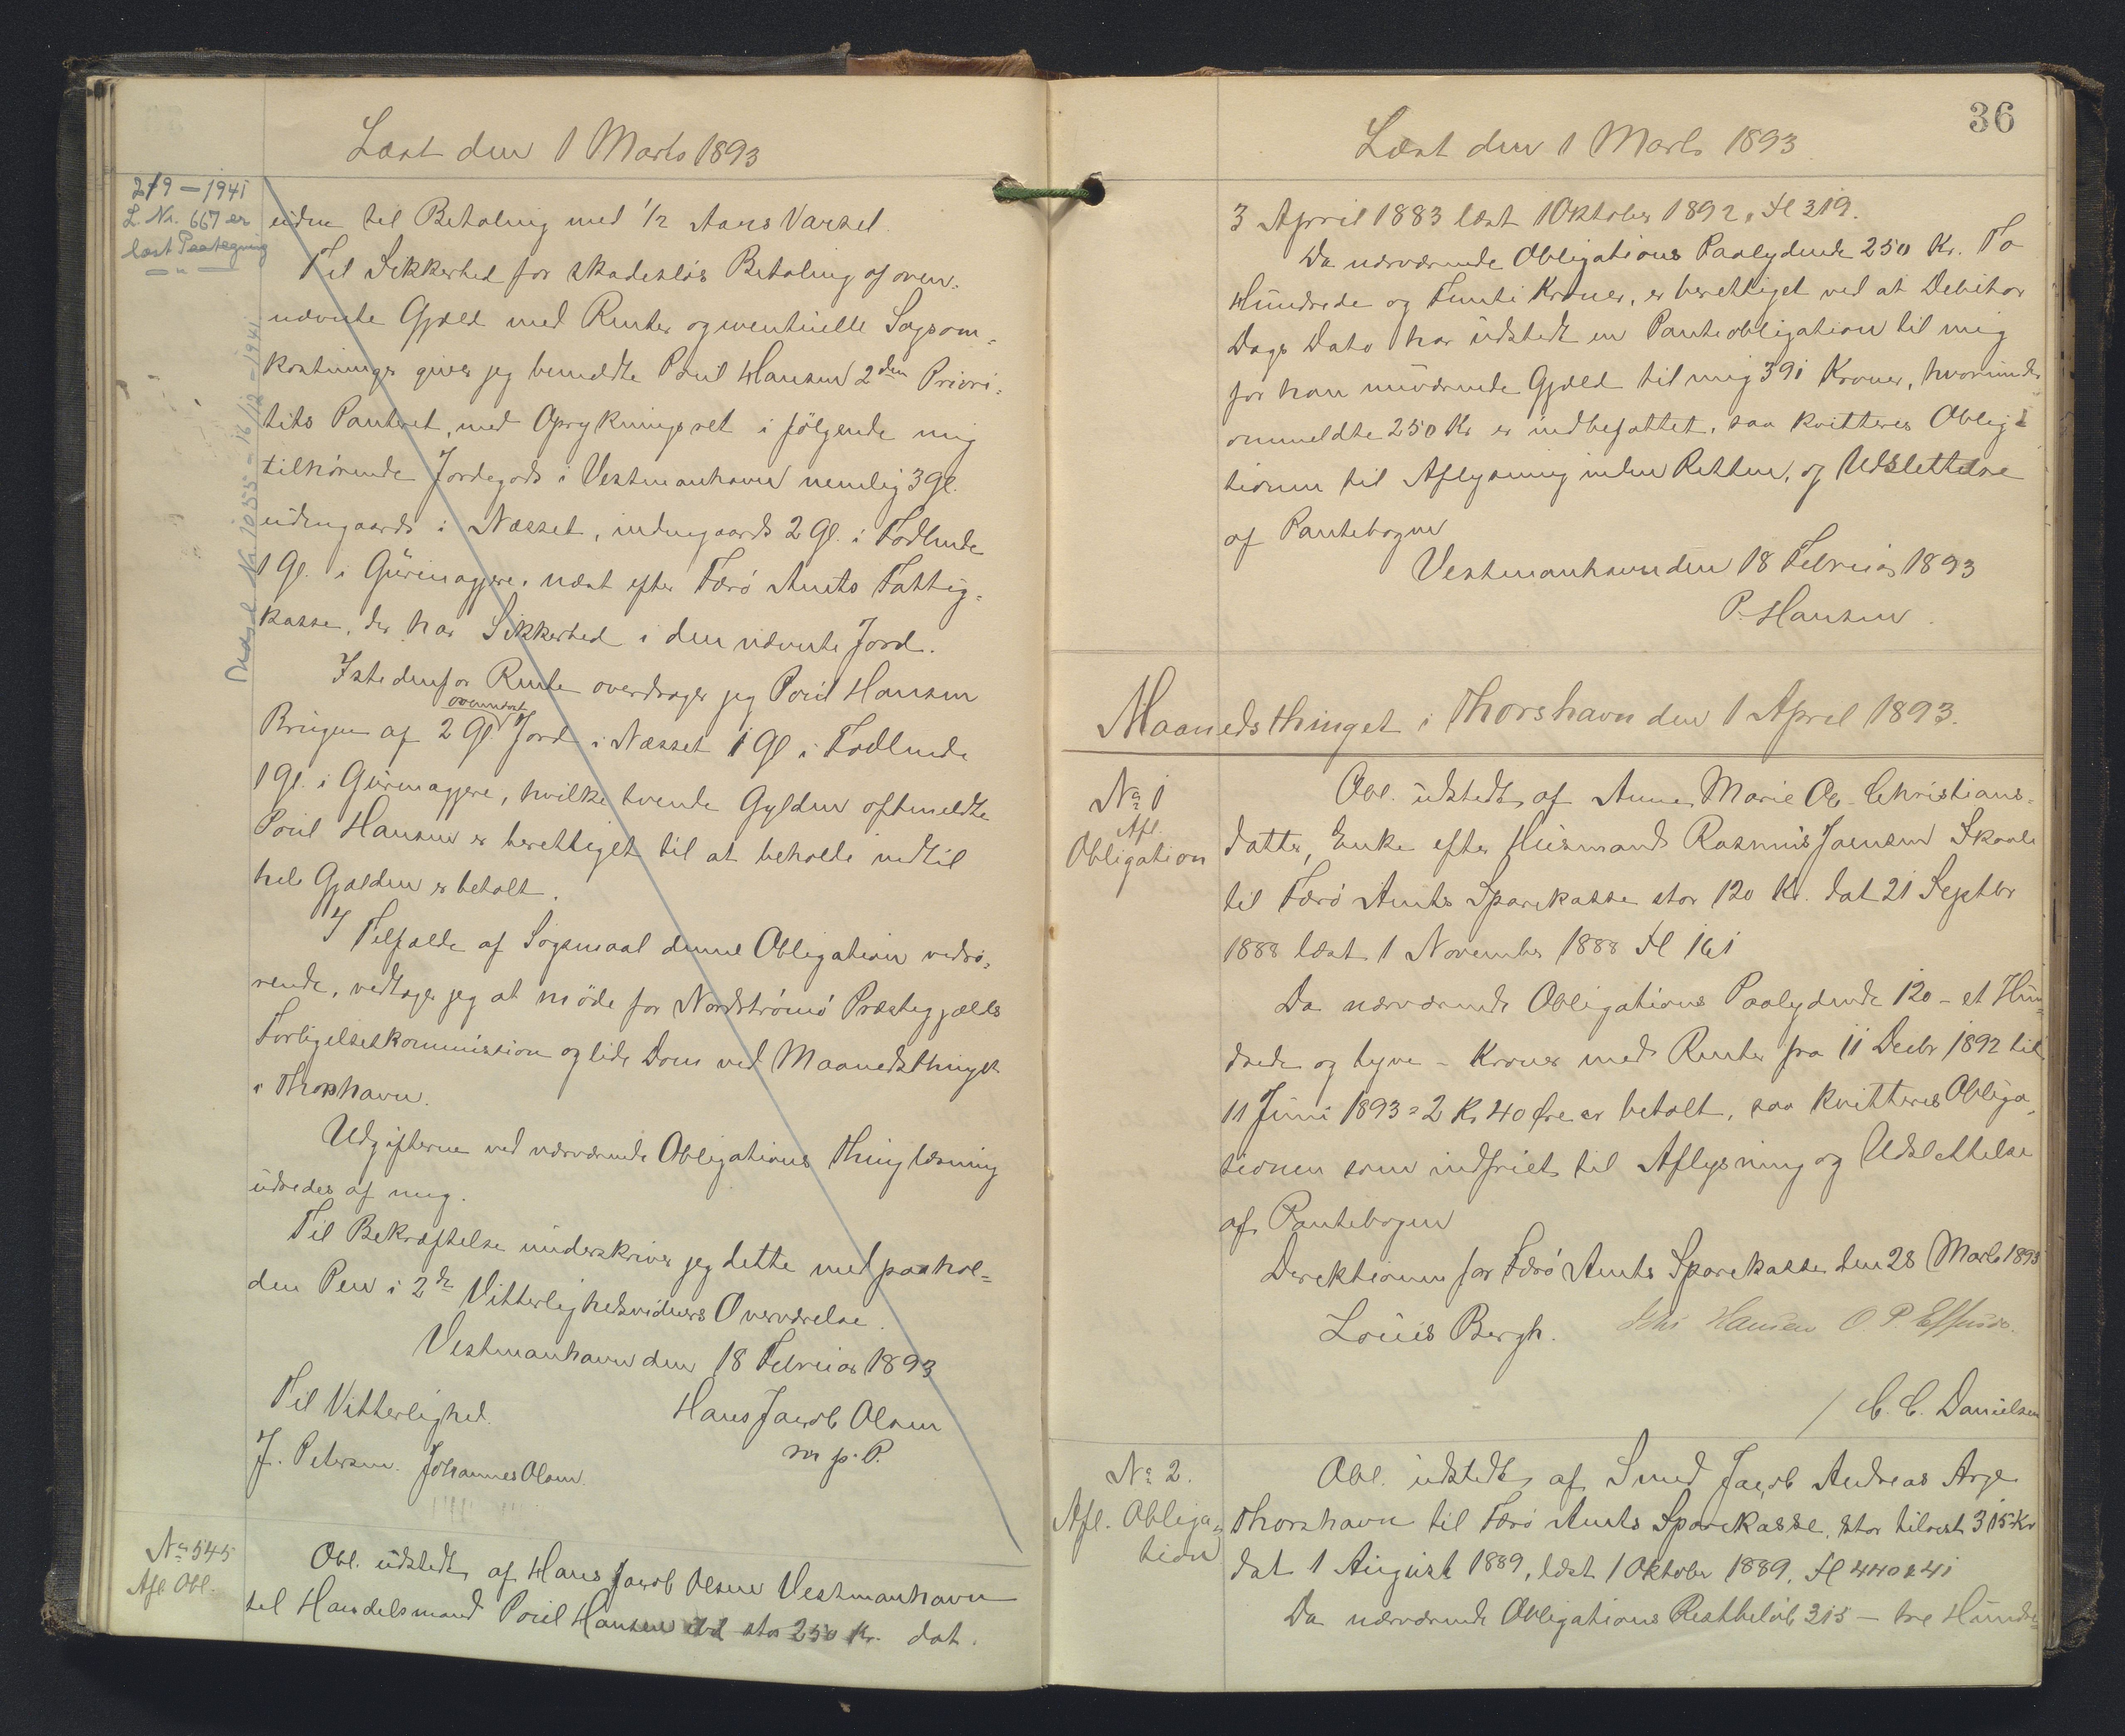 Læst den 1 Marts 1893
2/9 - 1941
L. Nr. 667 er
læst Paategning
Udsl. Nr. 1055 - 16/12 - 1941
uden til Betaling med 1/2 Aars Varsel.
Til Sikkerhed for skadesløs Betaling af oven-
nævnte Gjæld med Renter og eventuelle Sagsom-
kostninger giver jeg bemeldte Poul Hansen 2den Priori-
tets Panteret, med Oprykningsret i følgende mig
tilhørende Jordegods i Vestmanhavn nemlig 3 Gl.
udengaards i Næsset, indengaards 2 Gl. i Todlende
1 Gl. i Gürinagjere, næst efter Færø Amts Fattig-
kasse, der har Sikkerhed i den nævnte Jord.
Istedenfor Rente overdrager jeg Poul Hansen
ovennævnt
Brugen af 2 Gl. Jord i Næsset 1 Gl i Todlende
1 Gl. i Gürinagjere, hvilke tvende Gylden oftmeldte
Poul Hansen er berettiget til at beholde indtil
hele Gjælden er betalt.
I Tilfælde af Søgsmaal denne Obligation vedrø-
rende, vedtager jeg at møde for Nordstrømø Præstegjælds
Forligelseskommission og lide Dom ved Maanedsthinget
i Thorshavn.
Udgifterne ved nærværende Obligations Thinglæsning
udredes af mig.
Til Bekræftelse underskriver jeg dette med paahol-
den Pen i 2de Vitterlighedsvidners Overværelse.
Vestmanhavn den 18 Februar 1893
Til Vitterlighed. Hans Jacob Olsen
J. Petersen. Johannes Olsen. m. p. P.
No 545
Afl. Obl.
Obl. udstedt af Hans Jacob Olsen Vestmanhavn
til Handelsmand Poul Hansen stor 250 Kr. dat.
36
Læst den 1 Marts 1893
3 April 1883 læst 1 Oktober 1892, Fl 319.
Da nærværende Obligations Paalydende 250 Kr. To
Hundrede og Femti Kroner, er berettiget ved at Debitor
Dags Dato har udstedt en Panteobligation til mig
for han nuværende Gjæld til mig 391 Kroner, hvorunder
ommeldte 250 Kr er indbefattet, saa kvitteres Obliga-
tionen til Aflysning inden Retten, og Udslettelse
af Pantebogen
Vestmanhavn den 18 Februar 1893
P. Hansen.
Maanedsthinget i Thorshavn den 1 April 1893.
No 1
Afl.
Obligation
Obl. udstedt af Anne Marie Ole Christians-
datter, Enke efter Huusmand Rasmus Joensen Skaale
til Færø Amts Sparekasse stor 120 Kr. dat 21 Septbr
1888 læst 1 November 1888 Fl 161
Da nærværende Obligations Paalydende 120 - et Hun-
drede og tyve - Kroner med Renter fra 11 Decbr 1892 til
11 Juni 1893 = 2 Kr 40 Øre er betalt, saa kvitteres Obliga-
tionen som indfriet til Aflysning og Udslettelse
af Pantebogen
Direktionen for Færø Amts Sparekasse den 28 Marts 1893
Louis Bergh. Hansen O P Effersøe.
/ C. C. Danielsen
No 2.
Afl. Obliga-
tion
Obl. udstedt af Smed Jacob Andreas Arge
Thorshavn til Færø Amts Sparekasse, stor tilrest 315 Kr
dat 1 August 1889, læst 1 Oktober 1889, Fl 440 & 41
Da nærværende Obligations Restbeløb 315 - tre Hundre-